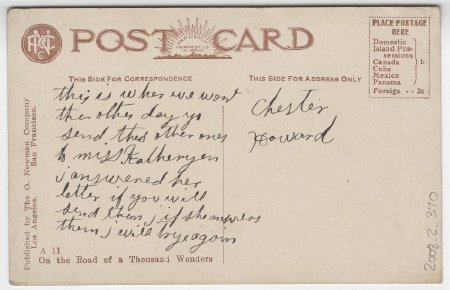 POST CARD
PLACE POSTAGE
HERE
Domestic
Island Pos-
sessions
Canada
Cuba
Mexico
Panama
1c
Foreign -- 2c
THIS SIDE FOR CORRESPONDENCE
THIS SIDE FOR ADDRESS ONLY
this is wher we wont
the other day yo
send thes other ones
to miss Katheryen
i answered her
letter if you will
send them, if she answers
them, i will bye agoin
Chester
Howard
Published by The O. Newman Company
Los Angeles. San Francisco.
A 11
On the Road of a Thousand Wonders
2008.2.310